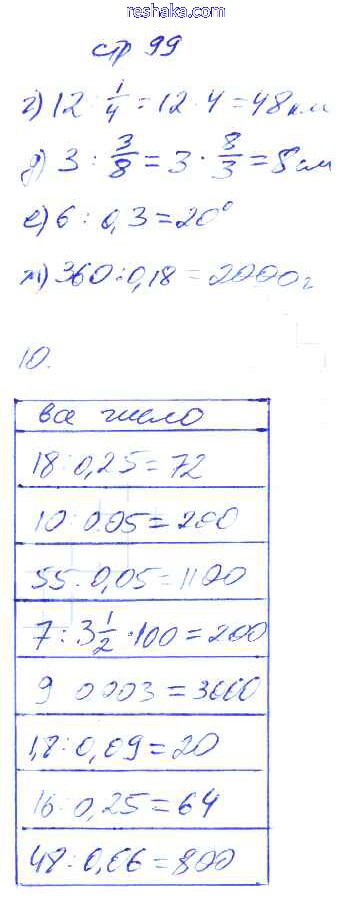 reshaka.com
стр 99
г) 12 : 1/4 = 12 · 4 = 48 км
д) 3 : 3/8 = 3 · 8/3 = 8 см
е) 6 : 0,3 = 20°
ж) 360 : 0,18 = 2000 г
10.
все число
18 : 0,25 = 72
10 : 0.05 = 200
55 : 0,05 = 1100
7 : 3 1/2 · 100 = 200
9 0.003 = 3000
1,8 : 0,09 = 20
16 : 0,25 = 64
48 : 0,06 = 800